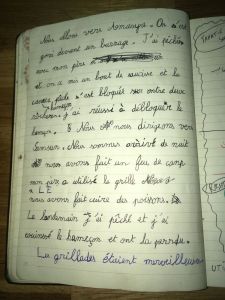 Nous allons vers Tomanges. On s'est
garé devant un barrage. J'ai pêché
avec mon père
et on a mis un bout de saucisse et la
canne pêche s'est bloqués entre deux
rochers. j'ai réussi à débloquer le
hameçon. Nous nous dirigeons vers
Nous sommes arrivés de nuit
nous avons fait un feu de camp
mon père a utilisé la grille
LE
nous avons fait cuire des poissons.
Le lendemain j'ai pêché et j'ai
coincé le hameçon et ont la perdu.
Les grillades étaient merveilleuses